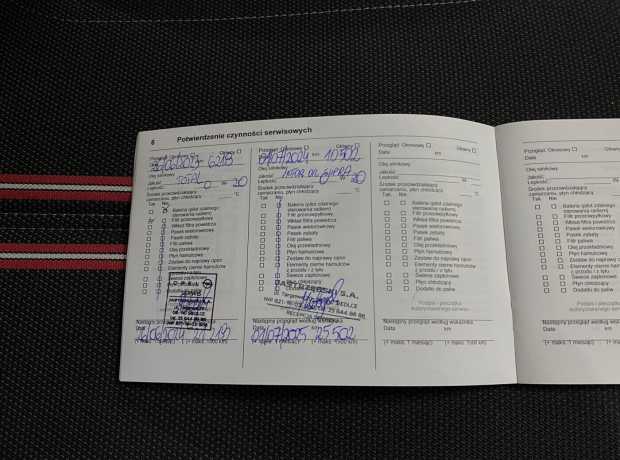 6 Potwierdzenie czynności serwisowych
Przegląd: Okresowy Główny
6218
Olej silnikowy
Jakość: TOTAL
Lepkość: 0 W 20
Środek przeciwdziałający zamarzaniu, płyn chłodzący °C
Tak Nie
Bateria (pilot zdalnego sterowania radiem)
Filtr przeciwpyłkowy
Wkład filtra powietrza
Pasek wielorowkowy
Pasek zębaty
Filtr paliwa
Olej przekładniowy
Płyn hamulcowy
Zestaw do naprawy opon
Elementy cierne hamulców
z przodu / z tyłu
Świece zapłonowe
OPEL
Następny przegląd według
(+ maks. 1 miesiąc) (+ maks. 1000 km)
Przegląd: Okresowy Główny
07/2024 km 10502
Olej silnikowy
Jakość:
Lepkość: W 20
Środek przeciwdziałający zamarzaniu, płyn chłodzący °C
Tak Nie
Bateria (pilot zdalnego sterowania radiem)
Filtr przeciwpyłkowy
Wkład filtra powietrza
Pasek wielorowkowy
Pasek zębaty
Filtr paliwa
Olej przekładniowy
Płyn hamulcowy
Zestaw do naprawy opon
Elementy cierne hamulców
z przodu / z tyłu
Świece zapłonowe
Płyn chłodzący
JASTRZĘBSKI S.A.
SIEDLCE
Następny przegląd według wskaźnika
07/2025 25 502
(+ maks. 1 miesiąc) (+ maks. 1000 km)
Przegląd: Okresowy Główny
Data km
Olej silnikowy
Jakość:
Lepkość: W
Środek przeciwdziałający zamarzaniu, płyn chłodzący °C
Tak Nie
Bateria (pilot zdalnego sterowania radiem)
Filtr przeciwpyłkowy
Wkład filtra powietrza
Pasek wielorowkowy
Pasek zębaty
Filtr paliwa
Olej przekładniowy
Płyn hamulcowy
Zestaw do naprawy opon
Elementy cierne hamulców
z przodu / z tyłu
Świece zapłonowe
Płyn chłodzący
Dodatki do paliw
Podpis i pieczątka
autoryzowanego serwisu
Następny przegląd według wskaźnika
Data km
(+ maks. 1 miesiąc) (+ maks. 1000 km)
Przegląd: Okresowy Główny
Data km
Olej silnikowy
Jakość:
Lepkość:
Środek przeciwdziałający
zamarzaniu, płyn chłodzący
Tak Nie
Bateria (pilot zdalnego
sterowania radiem)
Filtr przeciwpyłkowy
Wkład filtra powietrza
Pasek wielorowkowy
Pasek zębaty
Filtr paliwa
Olej przekładniowy
Płyn hamulcowy
Zestaw do naprawy opon
Elementy cierne hamulców
z przodu / z tyłu
Świece zapłonowe
Płyn chłodzący
Dodatki do paliw
Podpis i pieczątka
Następny przegląd według
Data km
(+ maks. 1 miesiąc) (+ maks.